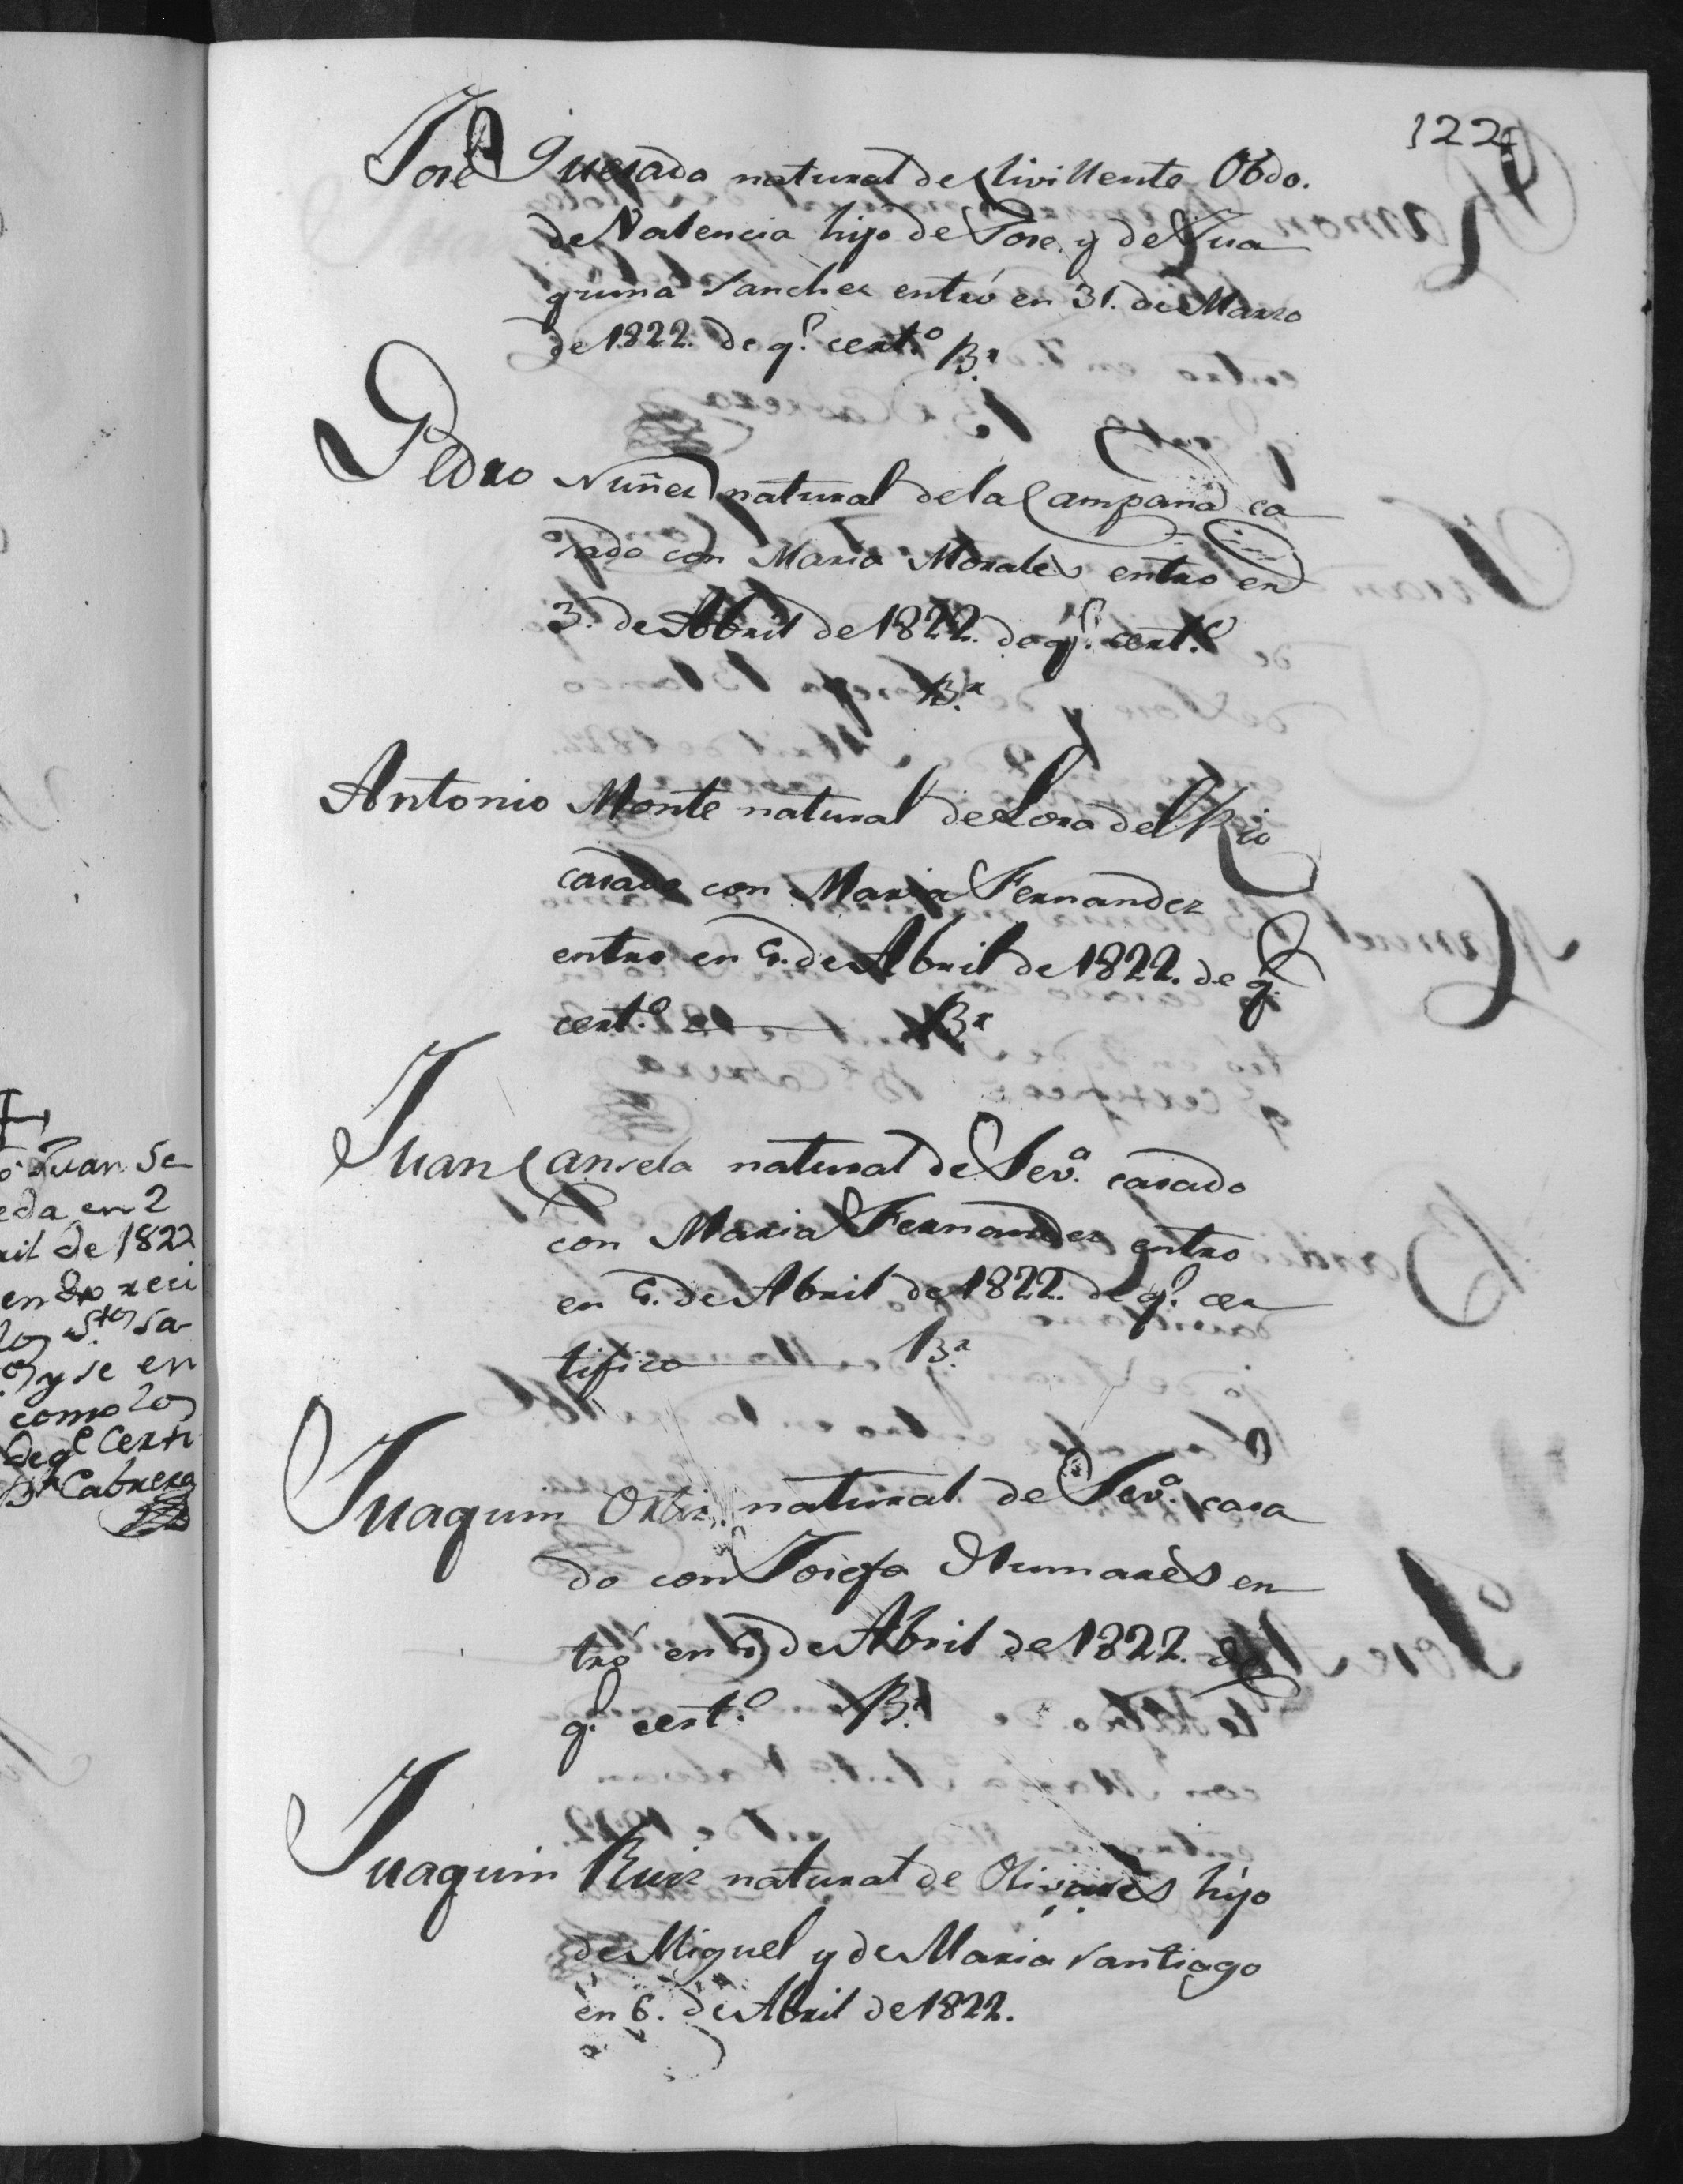 122
Jose Quesada natural de Clivillente Obdo.
de Valencia hijo de Jose y de Jua
quina Sanchez entró en 31. de Marzo
de 1822. de q.e cert.o B.r
Pedro Nuñez natural de la Campana ca
sado con Maria Morales entro en
3. de Abril de 1822. de q.e cert.o
B.r
Antonio Monte natural de Lora del Rio
casado con Maria Fernandez
entro en 5. de Abril de 1822. de q.e
cert.o B.r
Juan Cansela natural de Sev.a casado
con Maria Fernandez entro
en 5. de Abril de 1822. de q.e cer
tifico B.r
Juaquin Ortiz natural de Sev.a casa
do con Josefa en
tró en 5 de Abril de 1822. de
q.e cert.o B.r
Juaquin Ruiz natural de Olivares hijo
de Miguel y de Maria Santiago
en 6. de Abril de 1822.
Juan Se
eda en 2
ril de 1822
en reci
los S.tos Sa
y se en
como los
de q.e Certi
B.r Cabrera